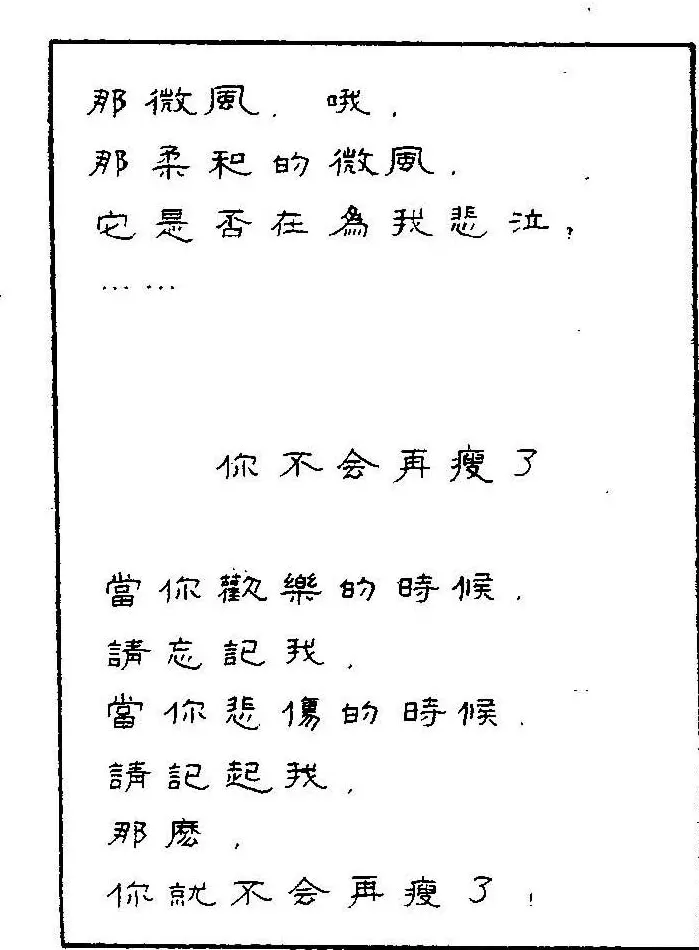 那微風．哦，
那柔和的微風．
它是否在為我悲泣？
……
你不会再瘦了
當你歡樂的時候，
請忘記我，
當你悲傷的時候．
請記起我，
那麽，
你就不会再瘦了！